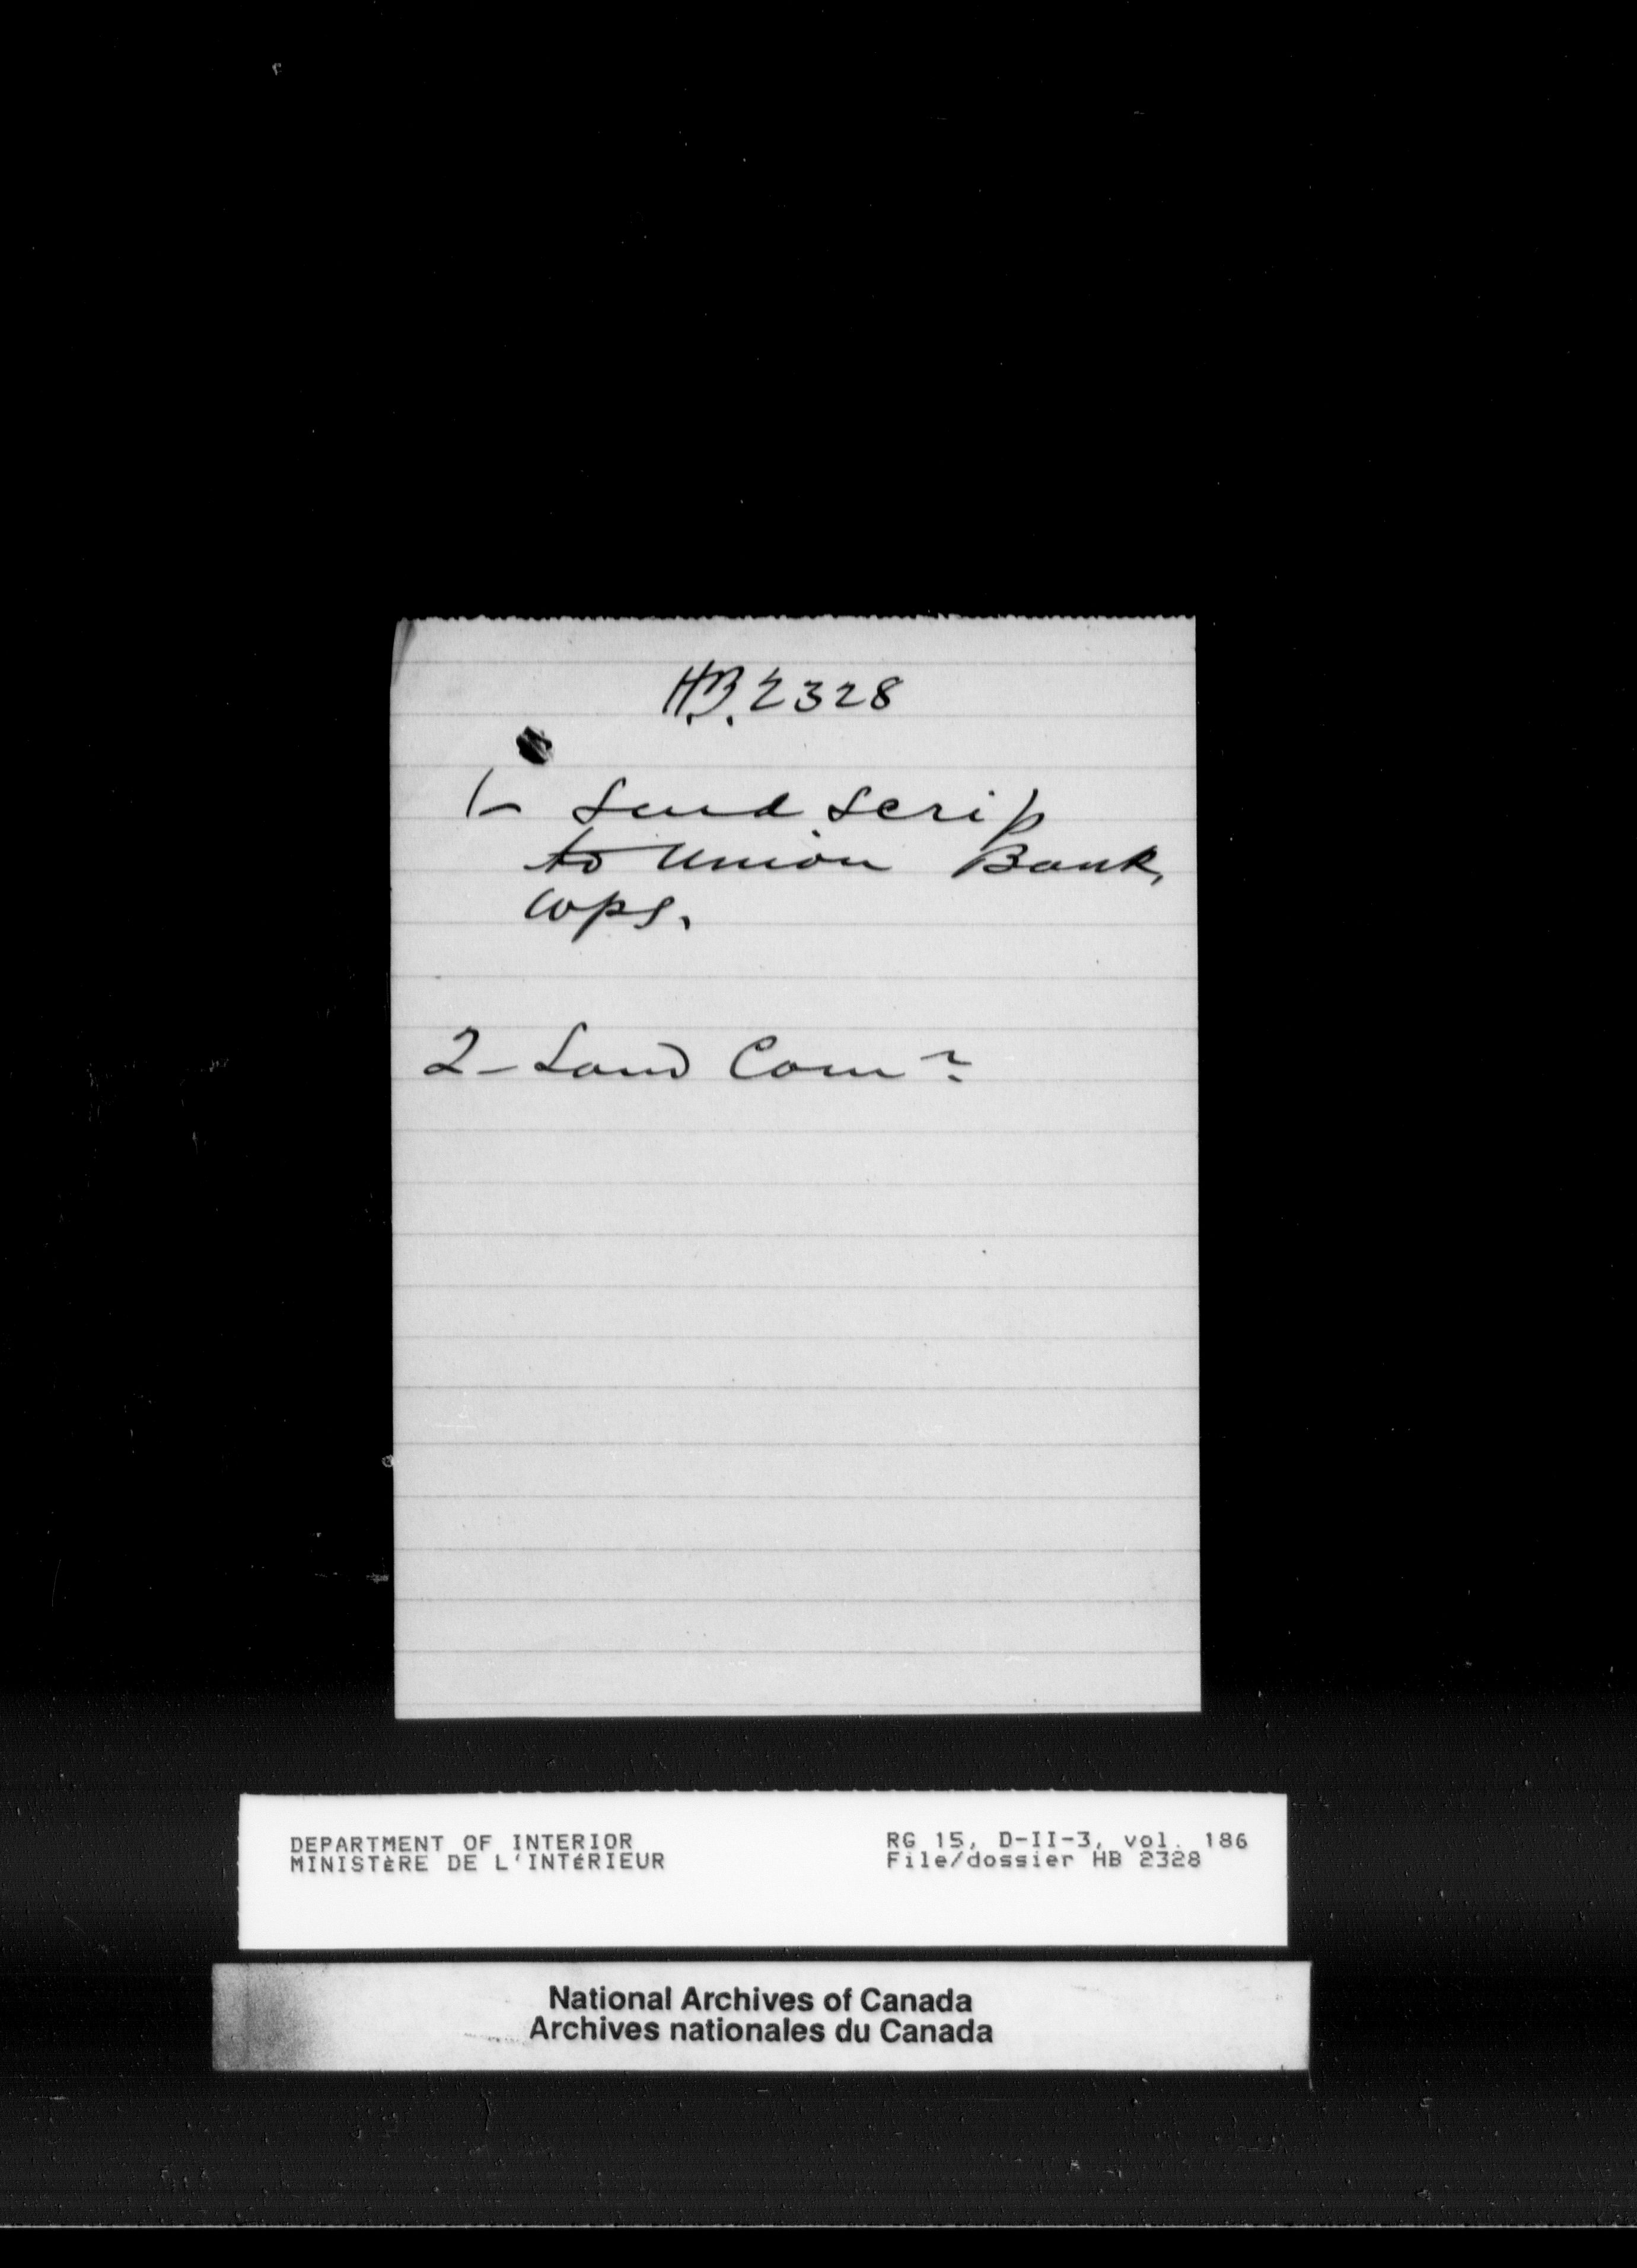 H.B. 2328
1- Send scrip
to Union Bank,
Wpg.
2- Land Comr
DEPARTMENT OF INTERIOR
MINISTÈRE DE L'INTÉRIEUR
RG 15, D-II-3, vol. 186
File/dossier HB 2328
National Archives of Canada
Archives nationales du Canada